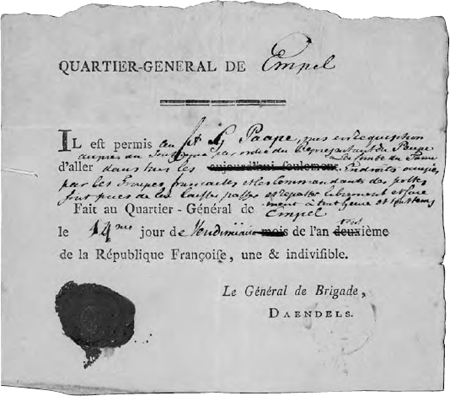 QUARTIER-GENERAL DE Empel
IL est permis au Paape, mis en requisition
auprès du par ordre du Representant du Peuple
d'aller dans tous les aujourd'hui seulement Endroits
par les troupes francaises et les Commandants des postes
sont de laisser passer et repasser librement et
Fait au Quartier-Général de Empel
le 14me jour de Vendimiaire mois de l'an deuxième
de la République Françoise, une & indivisible.
Le Général de Brigade,
DAENDELS.